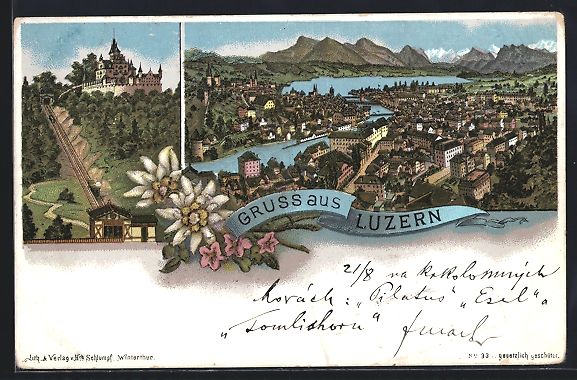 GRUSS aus LUZERN
21/8 na krkolomných
horách: "Pilatus" "Esel" a
"Tomlishorn"
Lith. & Verlag v. Schlumpf, Winterthur.
No 93 . gesetzlich geschützt.